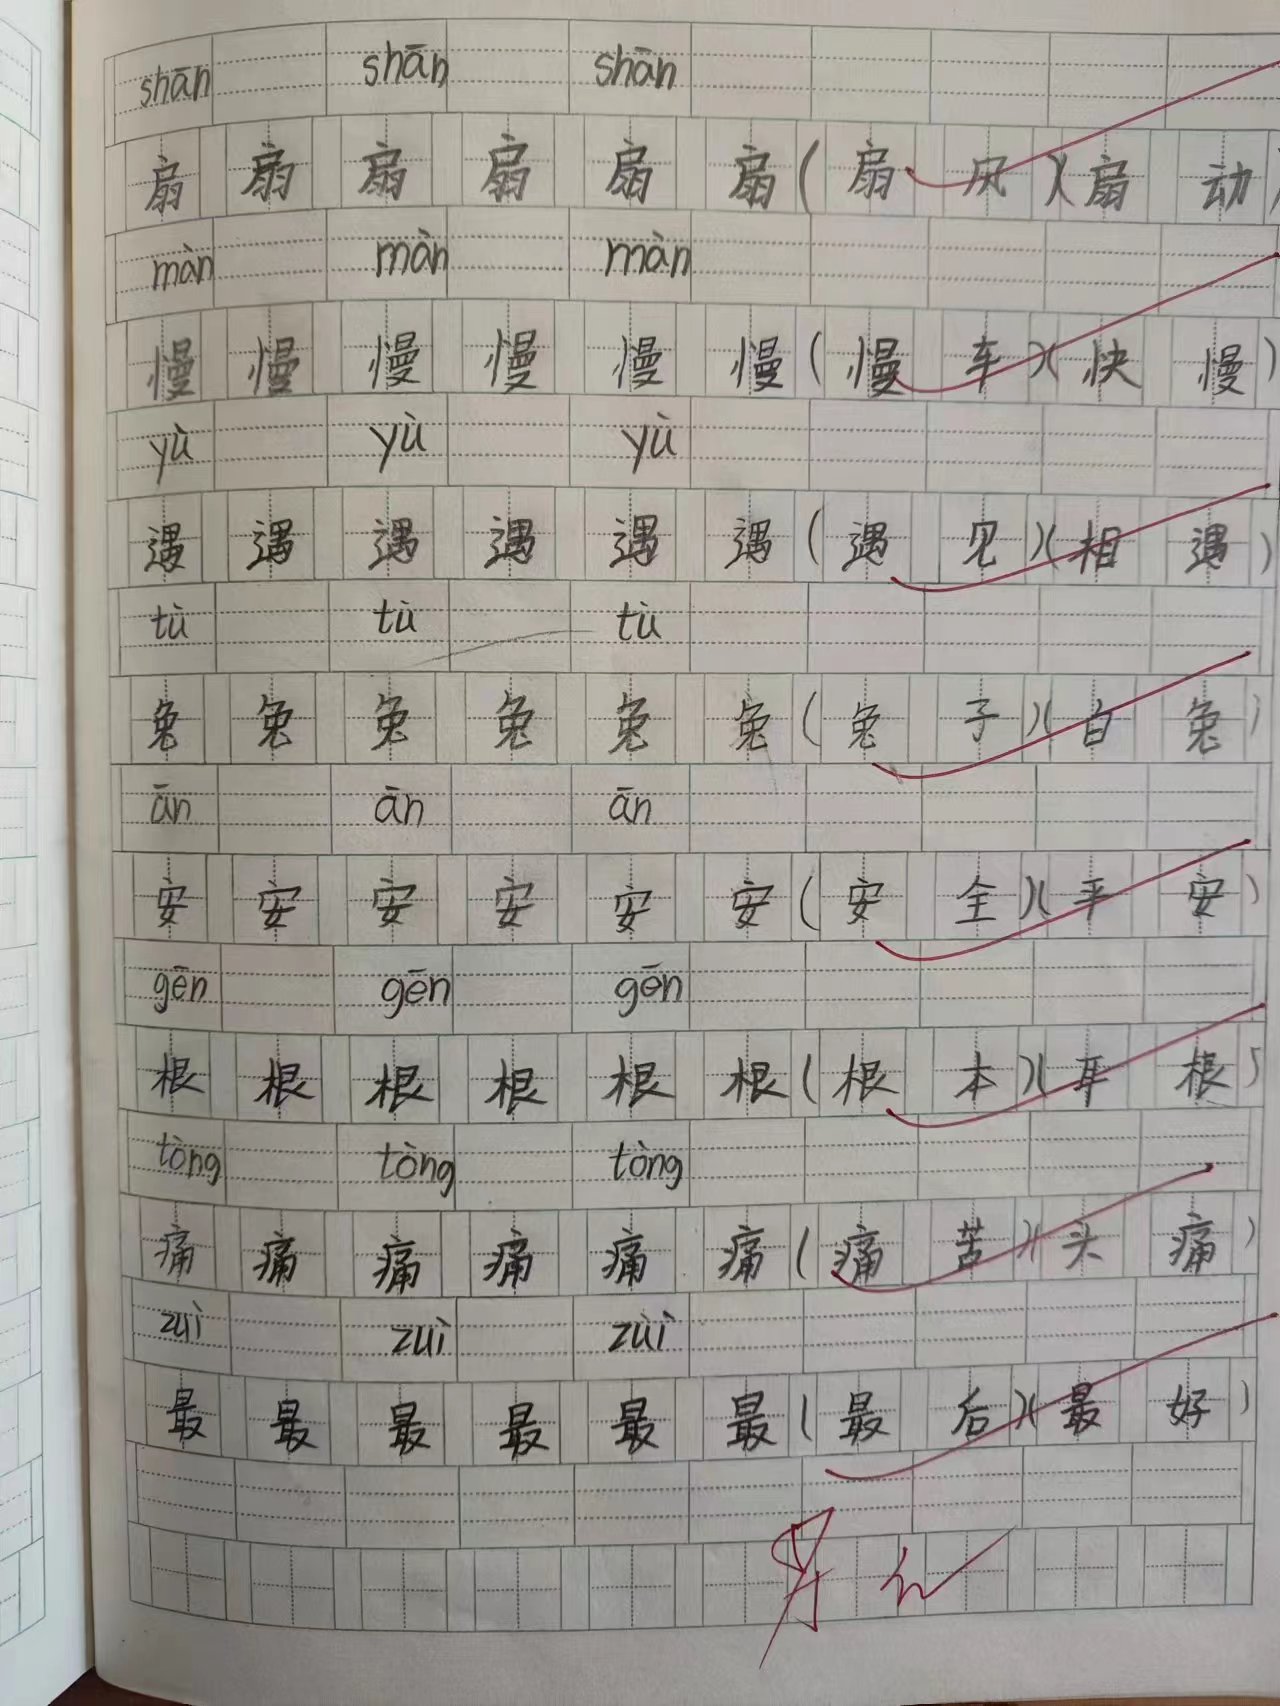 shān shān shān
扇 扇 扇 扇 扇 扇 (扇 风)(扇 动)
màn màn màn
慢 慢 慢 慢 慢 慢 (慢 车)(快 慢)
yù yù yù
遇 遇 遇 遇 遇 遇 (遇 见)(相 遇)
tù tù tù
兔 兔 兔 兔 兔 兔 (兔 子)(白 兔)
ān ān ān
安 安 安 安 安 安 (安 全)(平 安)
gēn gēn gēn
根 根 根 根 根 根 (根 本)(耳 根)
tòng tòng tòng
痛 痛 痛 痛 痛 痛 (痛 苦)(头 痛)
zuì zuì zuì
最 最 最 最 最 最 (最 后)(最 好)